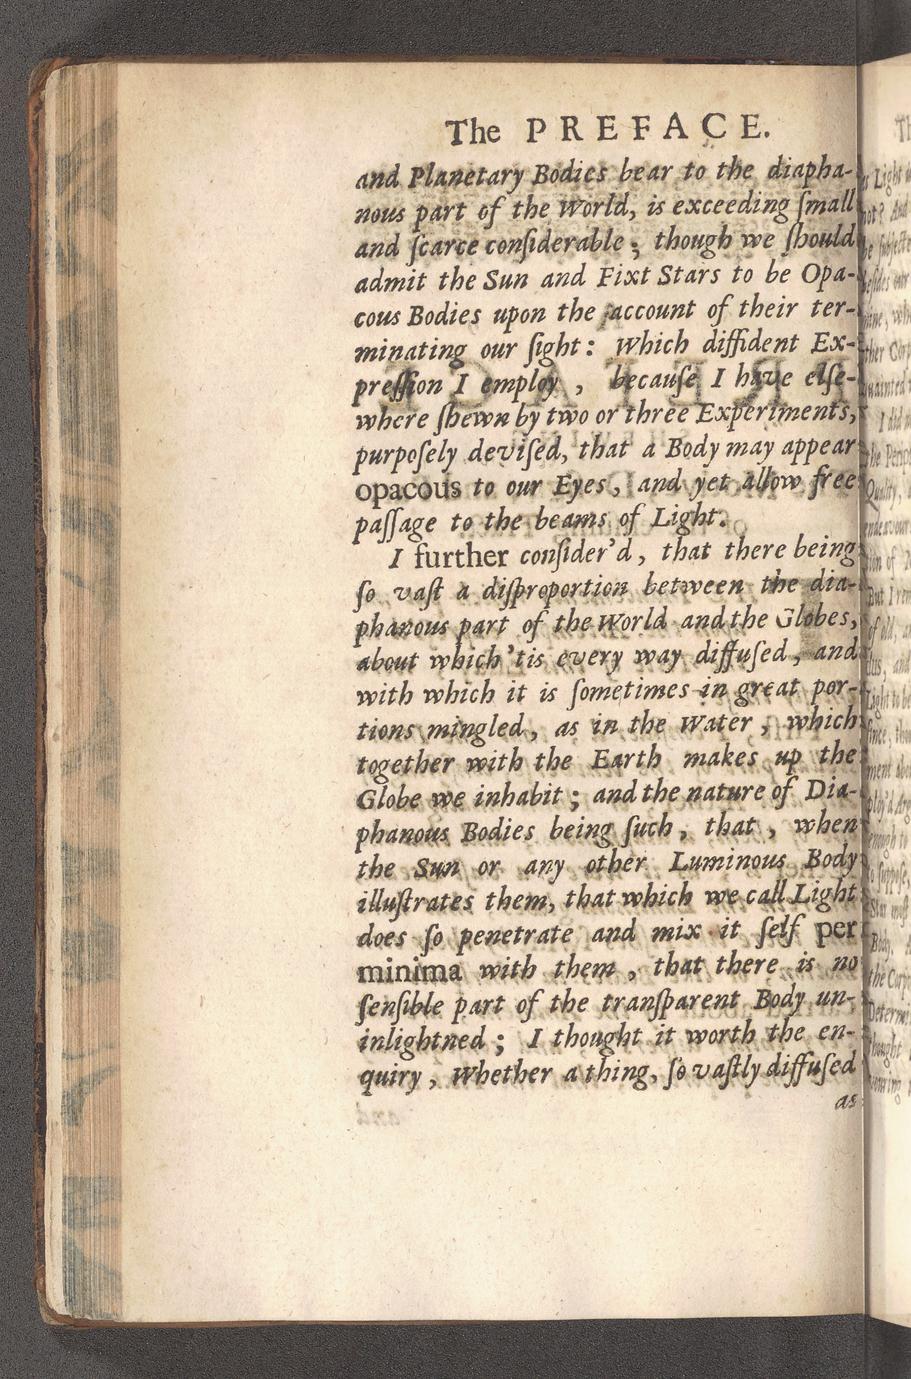 The PREFACE.
and Planetary Bodies bear to the diapha-
nous part of the World, is exceeding ſmall
and ſcarce conſiderable; though we ſhould
admit the Sun and Fixt Stars to be Opa-
cous Bodies upon the account of their ter-
minating our ſight: Which diffident Ex-
preſſion I employ, becauſe I have elſe-
where ſhewn by two or three Experiments,
purpoſely deviſed, that a Body may appear
opacous to our Eyes, and yet allow free
paſſage to the beams of Light.
I further conſider'd, that there being
ſo vaſt a diſproportion between the dia-
phanous part of the World and the Globes,
about which 'tis every way diffuſed, and
with which it is ſometimes in great por-
tions mingled, as in the Water, which
together with the Earth makes up the
Globe we inhabit; and the nature of Dia-
phanous Bodies being ſuch, that, when
the Sun or any other Luminous Body
illuſtrates them, that which we call Light
does ſo penetrate and mix it ſelf per
minima with them, that there is no
ſenſible part of the tranſparent Body un-
inlightned; I thought it worth the en-
quiry, Whether a thing, ſo vaſtly diffuſed
as